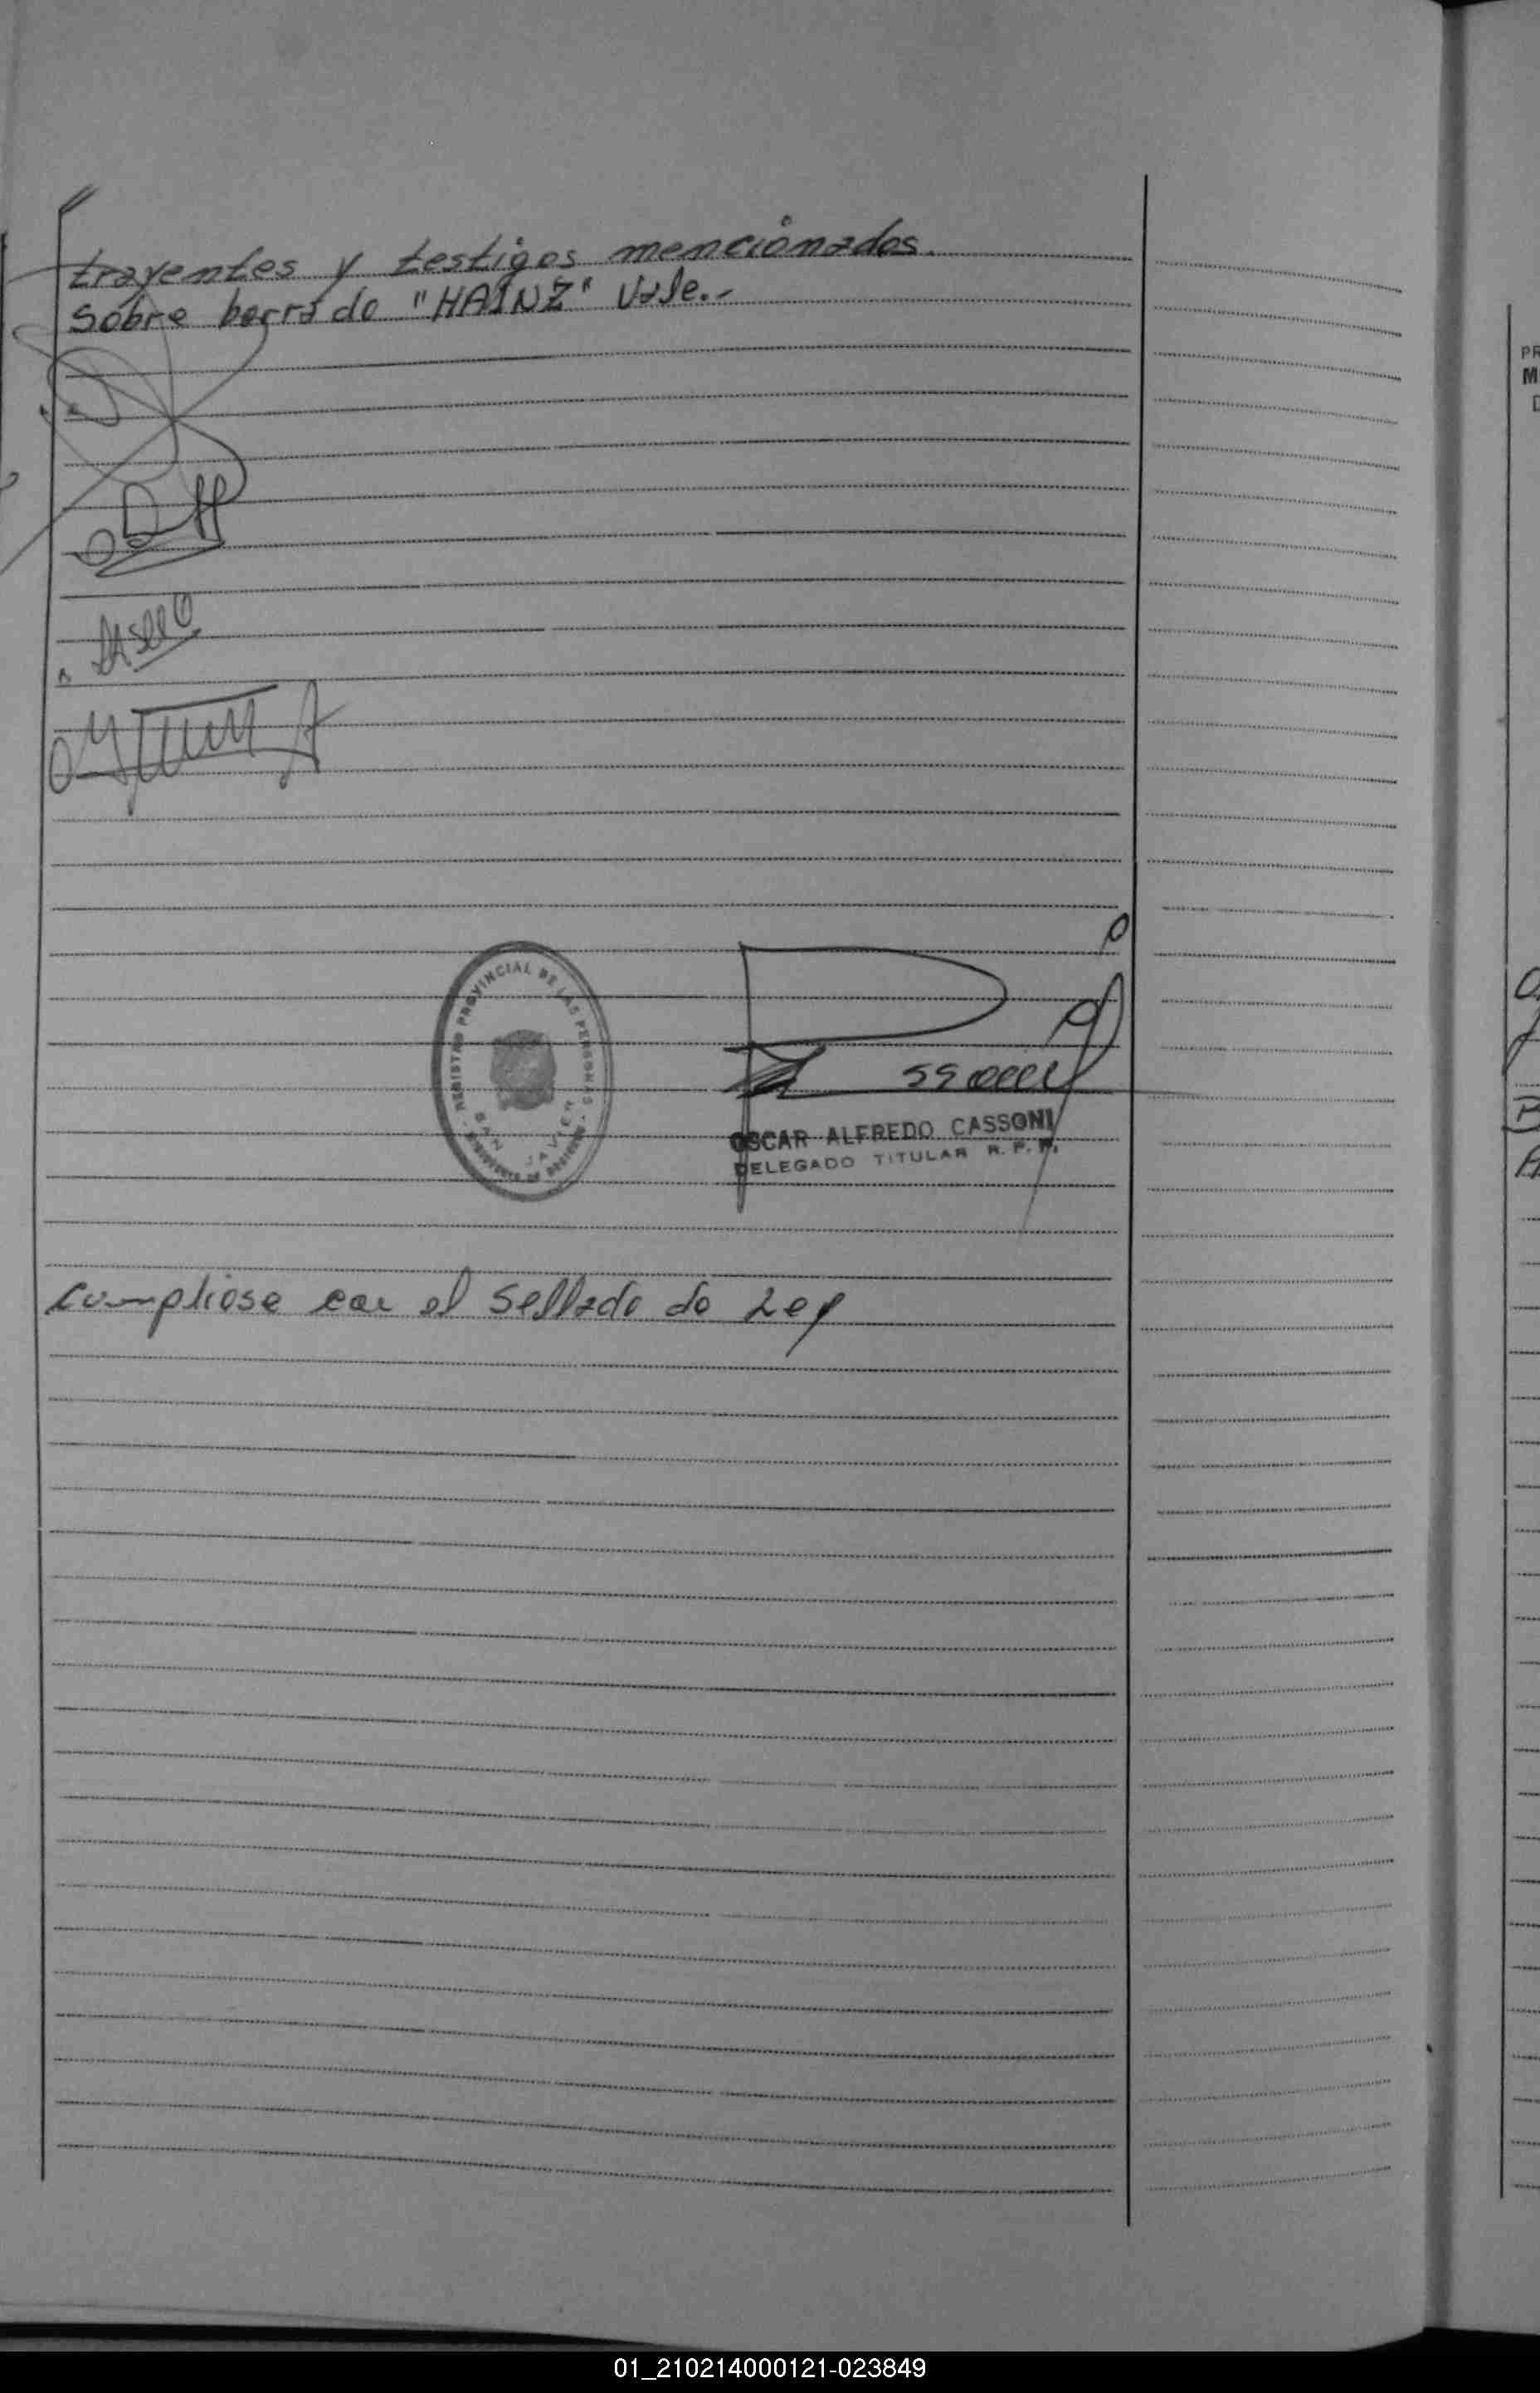 trayentes y testigos mencionados.
Sobre borrado "HAINZ" Vale.-
REGISTRO PROVINCIAL DE LAS PERSONAS
SAN JAVIER
OSCAR ALFREDO CASSONI
DELEGADO TITULAR R. P. P.
Cumpliose con el Sellado de Ley
01_210214000121-023849